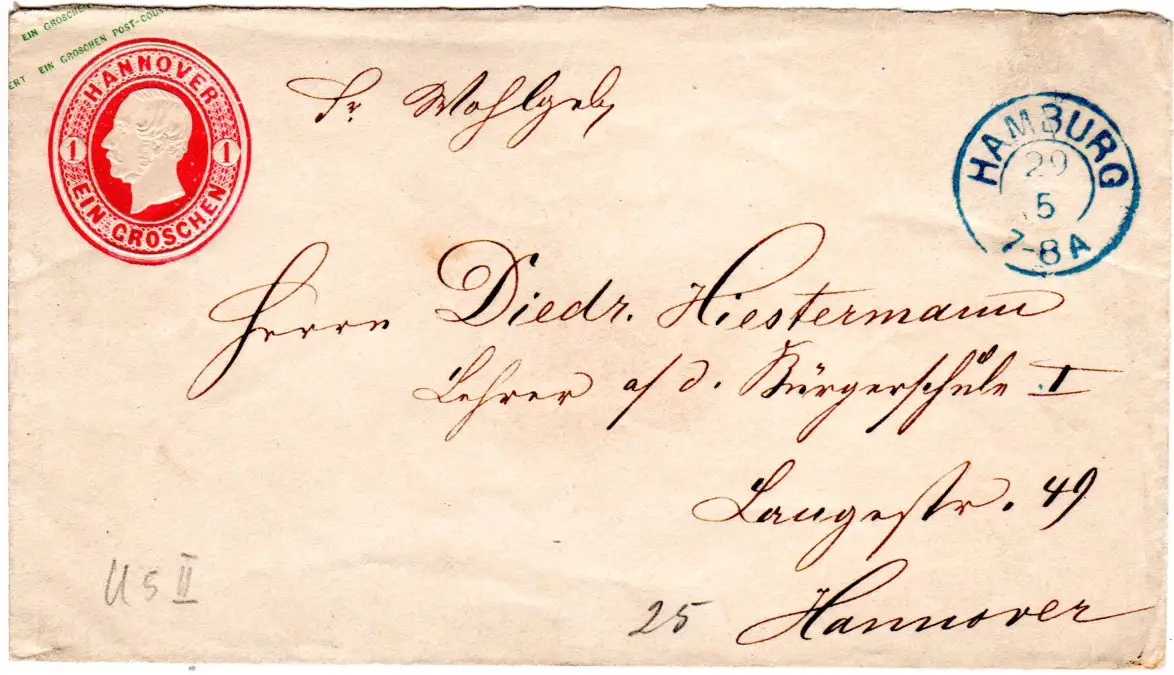 EIN GROSCHEN
ERT EIN GROSCHEN POST-COUV
HANNOVER
1 1
EIN GROSCHEN
HAMBURG
29
5
7-8 A
Sr Wohlgeb
Herrn Diedr. Hiestermann
Lehrer a/d. Bürgerschule I
Langestr. 49
Hannover
U 5 II
25